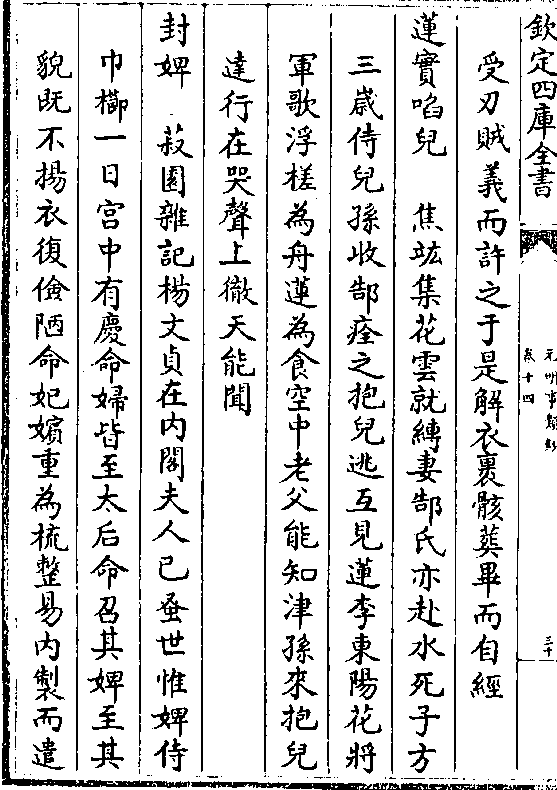 欽定四庫全書
元明事類鈔
卷十四
三十
受刃賊義而許之于是解衣裹骸葬畢而自經
蓮實啗兒　焦竑集花雲就縛妻郜氏亦赴水死子方
三歲侍兒孫收郜瘞之抱兒逃互見蓮李東陽花將
軍歌浮槎為舟蓮為食空中老父能知津孫來抱兒
達行在哭聲上徹天能聞
封婢　菽園雜記楊文貞在内閣夫人已蚤世惟婢侍
巾櫛一日宫中有慶命婦皆至太后命召其婢至其
貌既不揚衣復儉陋命妃嬪重為梳整易内製而遣